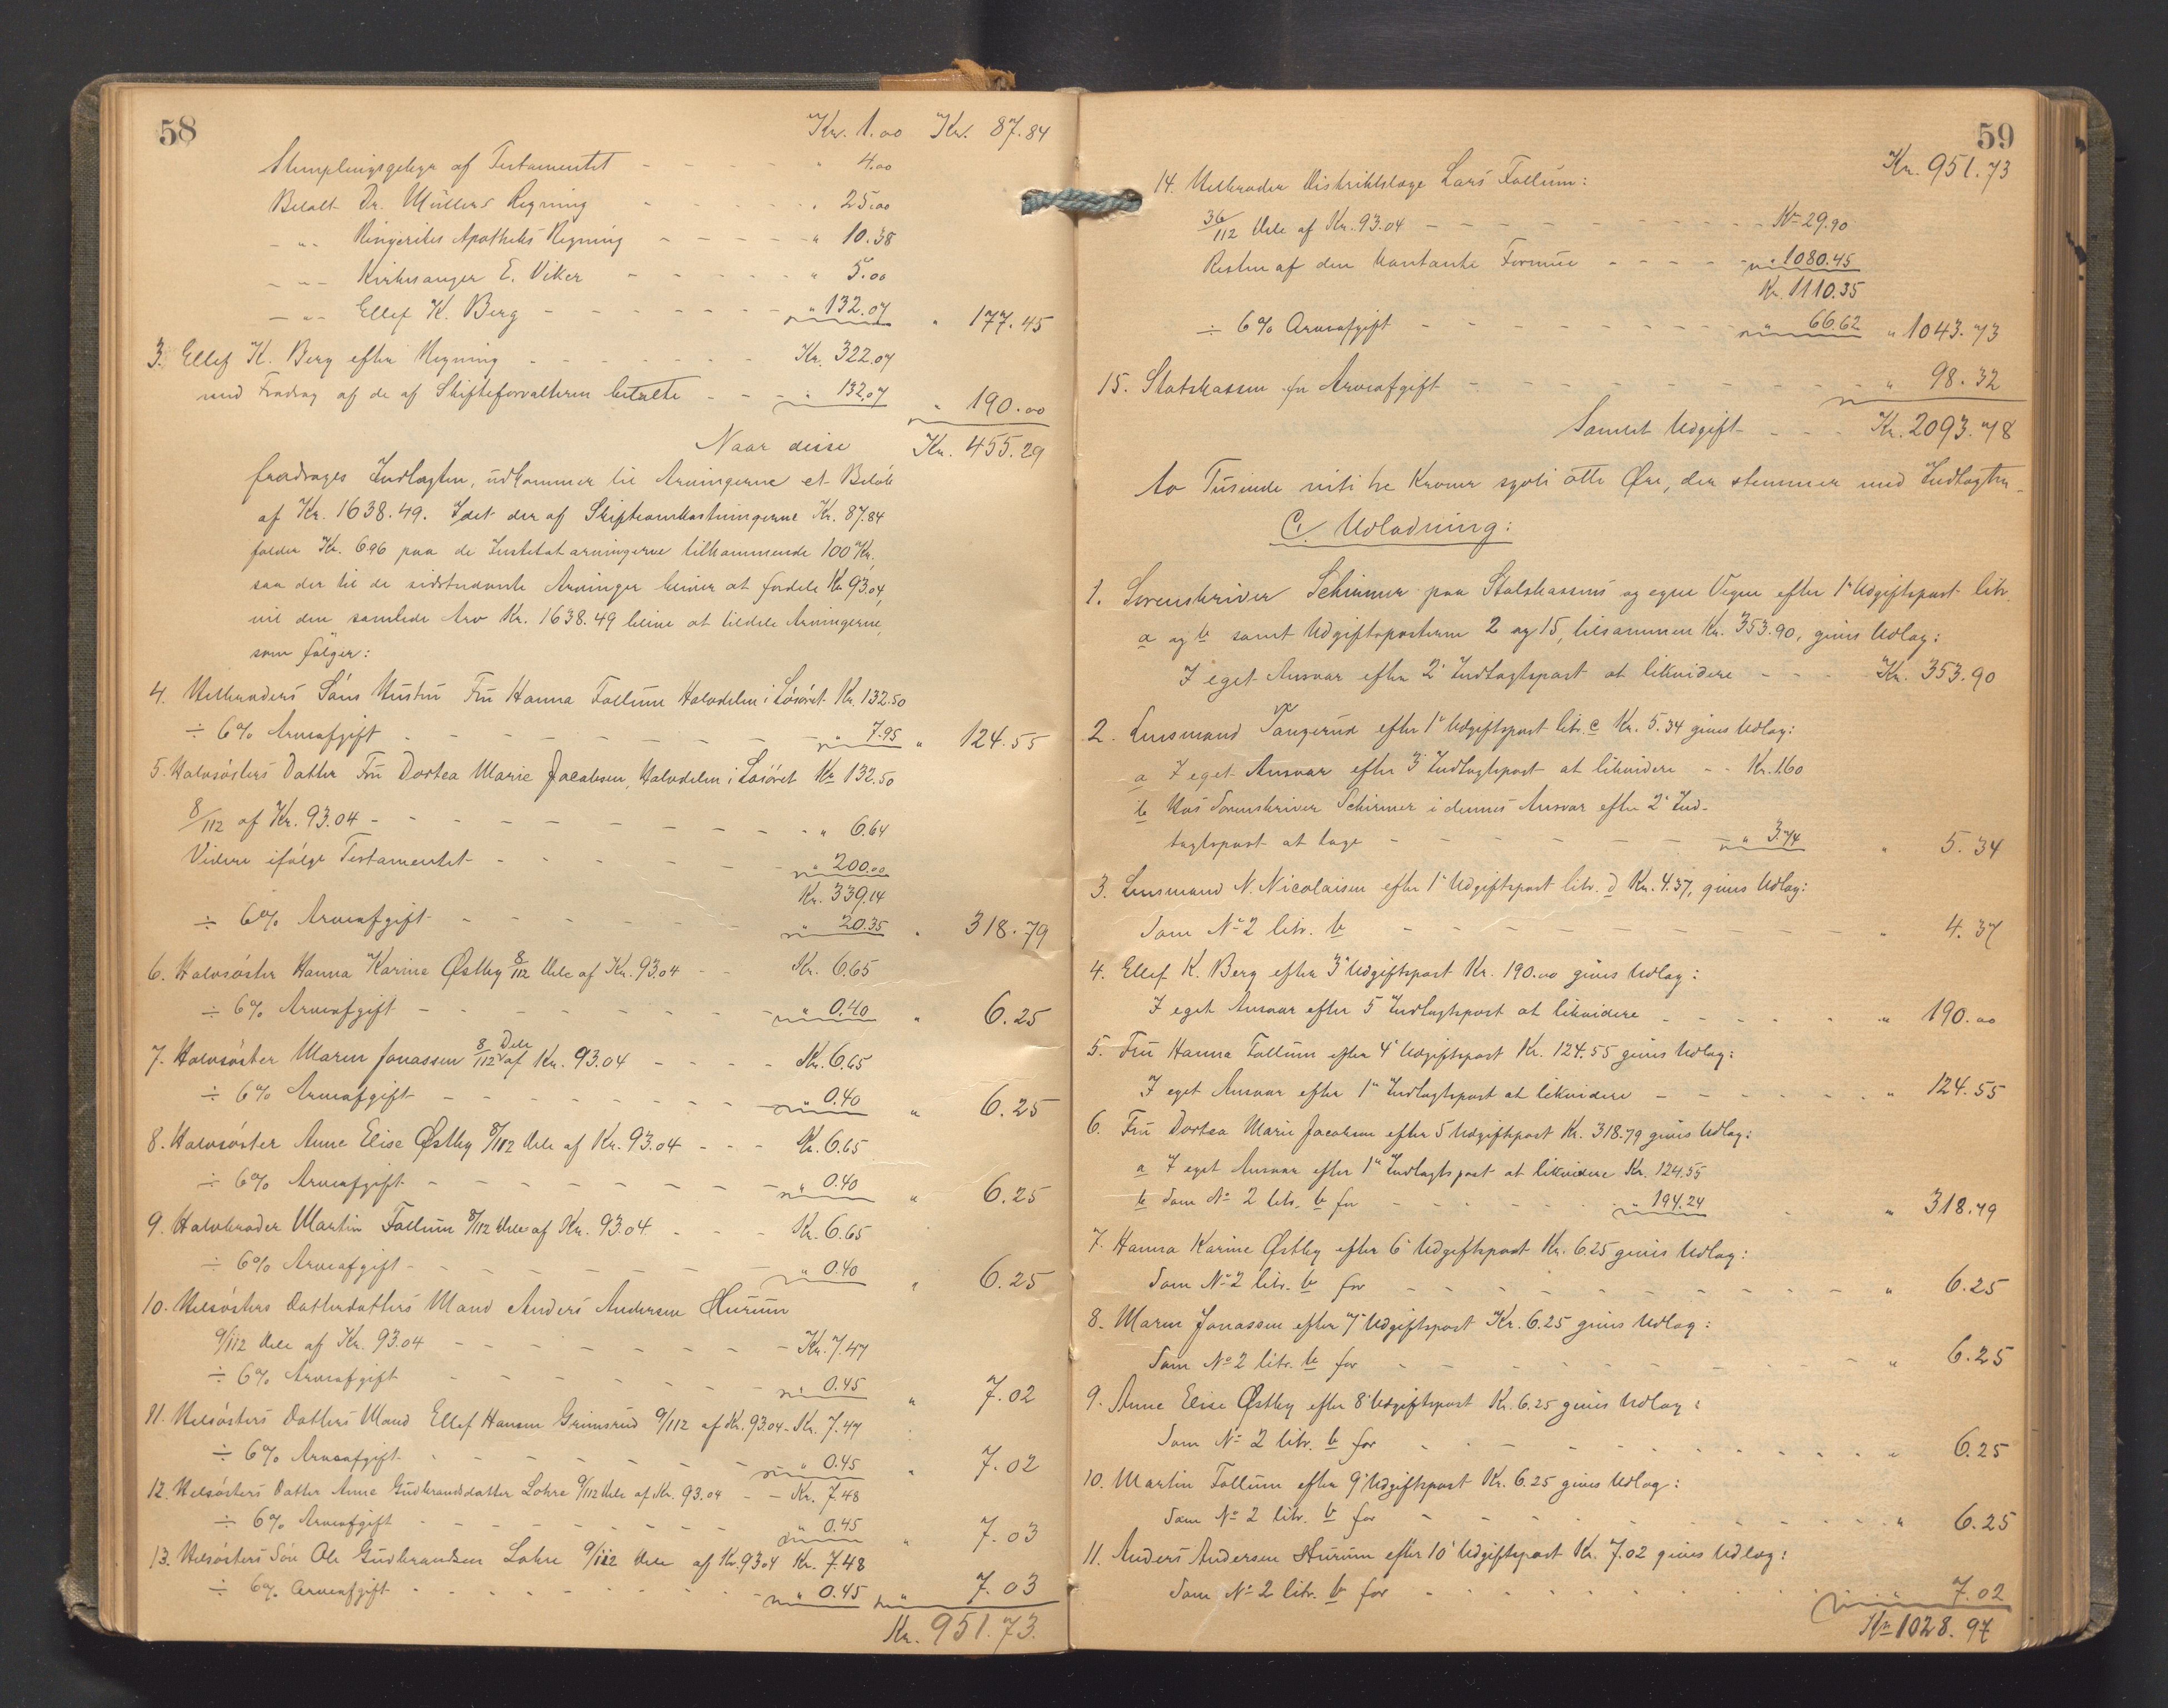 58
Kr. 1.00 Kr. 87.84
Stemplingsgebyr af Testamentet - - - - " 4.00
Betalt Dr. Müllers Regning - - - - " 25.00
- " - Ringerikes Apotheks Regning - - - - " 10.38
- " - Kirkesanger E. Viker - - - - " 5.00
- " - Ellef K. Berg - - - - " 132.07 " 177.45
3. Ellef K. Berg efter Regning - - - - Kr. 322.07
med Fradrag af de af Skifteforvalteren betalte - - " 132.07 " 190.00
Naar disse Kr. 455.29
fradrages Indtægten, udkommer til Arvingerne et Beløb
af Kr. 1638.49. Idet der af Skifteomkostningerne Kr. 87.84
falder Kr. 6.96 paa de Intestatarvingerne tilkommende 100 Kr.,
saa der til de sidstnævnte Arvinger bliver at fordele Kr 93.04,
vil den samlede Arv Kr. 1638.49 blive at tildele Arvingerne,
som følger:
4. Helbroders Søns Hustru Fru Hanna Follum Halvdelen i Løsøret Kr. 132.50
÷ 6% Arveafgift - - - - " 7.95 " 124.55
5. Halvsøsters Datter Fru Dortea Marie Jacobsen, Halvdelen i Løsøret Kr 132.50
8/112 af Kr. 93.04 - - - - " 6.64
Videre ifølge Testamentet - - - - " 200.00
Kr. 339.14
÷ 6% Arveafgift - - - - " 20.35 " 318.79
6. Halvsøster Hanna Karine Østby 8/112 Dele af Kr. 93.04 - - Kr. 6.65
÷ 6% Arveafgift - - - - " 0.40 " 6.25
7. Halvsøster Maren Jonassen 8/112 Dele af Kr. 93.04 - - - - Kr. 6.65
÷ 6% Arveafgift - - - - " 0.40 " 6.25
8. Halvsøster Anne Elise Østby 8/112 Dele af Kr. 93.04 - - - Kr. 6.65
÷ 6% Arveafgift - - - - " 0.40 " 6.25
9. Halvbroder Martin Follum 8/112 Dele af Kr. 93.04 - - - Kr. 6.65
÷ 6% Arveafgift - - - - " 0.40 " 6.25
10. Helsøsters Datterdatters Mand Anders Andersen Hurum
9/112 Dele af Kr. 93.04 - - - - Kr. 7.47
÷ 6% Arveafgift - - - - " 0.45 " 7.02
11. Helsøsters Datters Mand Ellef Hansen Grimsrud 9/112 af Kr. 93.04 - Kr. 7.47
÷ 6% Arveafgift - - - - " 0.45 " 7.02
12. Helsøsters Datter Anne Gudbrandsdatter Lohre 9/112 Dele af Kr. 93.04 - - Kr. 7.48
÷ 6% Arveafgift - - - - " 0.45 " 7.03
13. Helsøsters Søn Ole Gudbrandsen Lohre 9/112 Dele af Kr. 93.04 Kr. 7.48
÷ 6% Arveafgift - - - - " 0.45 " 7.03
Kr. 951.73.
59
Kr. 951.73
14. Helbroder Distriktslæge Lars Follum:
36/112 Dele af Kr. 93.04 - - - - Kr 29.90
Resten af den kontante Formue - - - - " 1080.45
Kr. 1110.35
÷ 6% Arveafgift - - - - " 66.62 " 1043.73
15. Statskassen for Arveafgift - - - - " 98.32
Samlet Udgift - - - Kr. 2093.78
to Tusinde niti tre Kroner sytti otte Øre, der stemmer med Indtægten.
C. Udlodning:
1. Sorenskriver Schirmer paa Statskassens og egne Vegne efter 1ste Udgiftspost litr.
a og b samt Udgiftsposterne 2 og 15, tilsammen Kr. 353.90, gives Udlæg:
I eget Ansvar efter 2' Indtægtspost at likvidere - - - Kr. 353.90
2. Lensmand Tangerud efter 1' Udgiftspost litr. c Kr. 5.34 gives Udlæg:
a I eget Ansvar efter 3' Indtægtspost at likvidere - - Kr. 1.60
b Hos Sorenskriver Schirmer i dennes Ansvar efter 2' Ind-
tægtspost at tage - - - - " 3.74 " 5.34
3. Lensmand N. Nicolaisen efter 1' Udgiftspost litr. d Kr. 4.37, gives Udlæg:
Som No 2 litr. b - - - - " 4.37
4. Ellef K. Berg efter 3' Udgiftspost Kr. 190.00 gives Udlæg:
I eget Ansvar efter 5' Indtægtspost at likvidere - - - - " 190.00
5. Fru Hanna Follum efter 4' Udgiftspost Kr. 124.55 gives Udlæg:
I eget Ansvar efter 1ste Indtægtspost at likvidere - - - - " 124.55
6. Fru Dortea Marie Jacobsen efter 5' Udgiftspost Kr. 318.79 gives Udlæg:
a I eget Ansvar efter 1ste Indtægtspost at likvidere Kr. 124.55
b Som No 2 litr. b for - - - - " 194.24 " 318.79
7. Hanna Karine Østby efter 6' Udgiftspost Kr. 6.25 gives Udlæg:
Som No 2 litr. b for - - - - " 6.25
8. Maren Jonassen efter 7' Udgiftspost Kr. 6.25 gives Udlæg:
Som No 2 litr. b for - - - - " 6.25
9. Anne Elise Østby efter 8' Udgiftspost Kr. 6.25 gives Udlæg:
Som No 2 litr. b for - - - - " 6.25
10. Martin Follum efter 9' Udgiftspost Kr. 6.25 gives Udlæg:
Som No 2 litr. b for - - - - " 6.25
11. Anders Andersen Hurum efter 10' Udgiftspost Kr. 7.02 gives Udlæg:
Som No 2 litr. b for - - - - " 7.02
Kr 1028.97